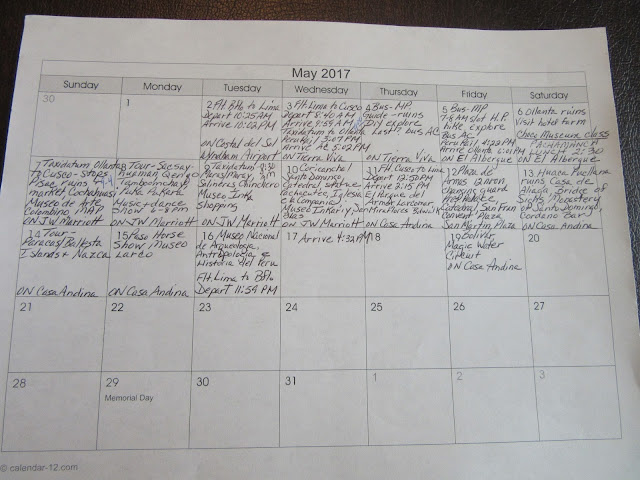 May 2017
Sunday Monday Tuesday Wednesday Thursday Friday Saturday
30
1
2 Flt. Bflo to Lima
Depart 10:25AM
Arrive 10:02 PM
ON Costal del Sol
Wyndham Airport
3 Flt. Lima to Cusco
Depart 8:40 AM
Arrive 9:59 AM
Taxidatum to Ollanta
PeruRail 3:37 PM
Arrive At 5:02 PM
ON Tierra Viva
4 Bus-MP
Guide-ruins
DIY explore
Last bus AC
ON Tierra Viva
5 Bus-MP
7-8 AM slot H.P.
hike explore
Bus AC
PeruRail 4:22 PM
Arrive Ollanta
ON El Albergue
6 Ollanta ruins
Visit Inkd farm
Choco Museum class
PACHAMANCA
LUNCH
ON El Albergue
7 Taxidatum Ollanta
To Cusco-stops
Pisac ruins
market
Museo de Arte
Colombino MAP
ON JW Marriott
8 Tour-Sacsay-
huaman Qenqo
Tambomachay,
Puka Pukara
Music + dance
Show 6-8 pm
ON JW Marriott
9 Taxidatum
Maras/Moray
Salineras Chinchero
Museo Inka
Shopping
ON JW Marriott
10 Coricancha
Santo Domingo,
Cathedral
Iglesia
la Compania
Museo Inkariy San
Blas
ON JW Marriott
11 Flt. Cusco to Lima
Depart 12:50 PM
Arrive 2:15 PM
El Parque del
Amor Larcomar
Miraflores
ON Casa Andina
12 Plaza de
Armas
changing guard
Cathedral San Fran
Convent Plaza
San Martin Plaza
13 Huaca Pucllana
ruins Casa de
Aliaga Bridge of
Sighs Monastery
of Santo Domingo,
Cordano Bar
ON Casa Andina
14 Tour-
Paracas Ballesta
Islands + Nazca
ON Casa Andina
15 Paso Horse
Show Museo
Larco
ON Casa Andina
16 Museo Nacional
de Arqueologia,
Antropologia y
Historia del Peru
Flt. Lima to Bflo
Depart 11:59 PM
17 Arrive 4:32 PM
18
19
Magic Water
Circuit
ON Casa Andina
20
21 22 23 24 25 26 27
28
29
Memorial Day
30 31 1 2 3
© calendar-12.com